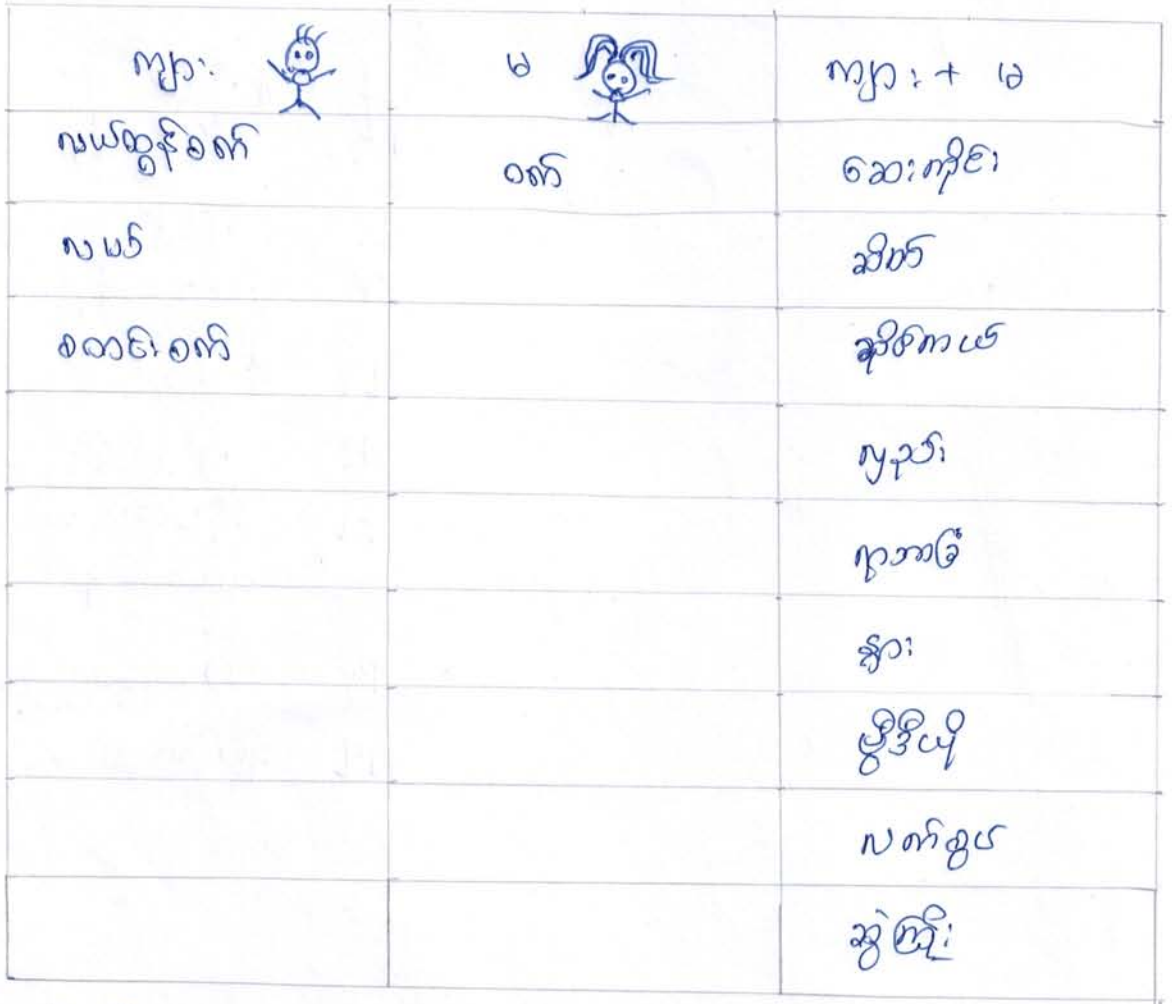 ကျား မ ကျား + မ
လယ်ထွန်စက် ဝက် ဆေးကိုင်း
လယ် ဆိတ်
စပါး စက် ဆိုင်ကယ်
လှည်း
ရွာဘာခြံ
နွား
ဗွီဒီယို
လက်စွပ်
ဆွဲကြိုး